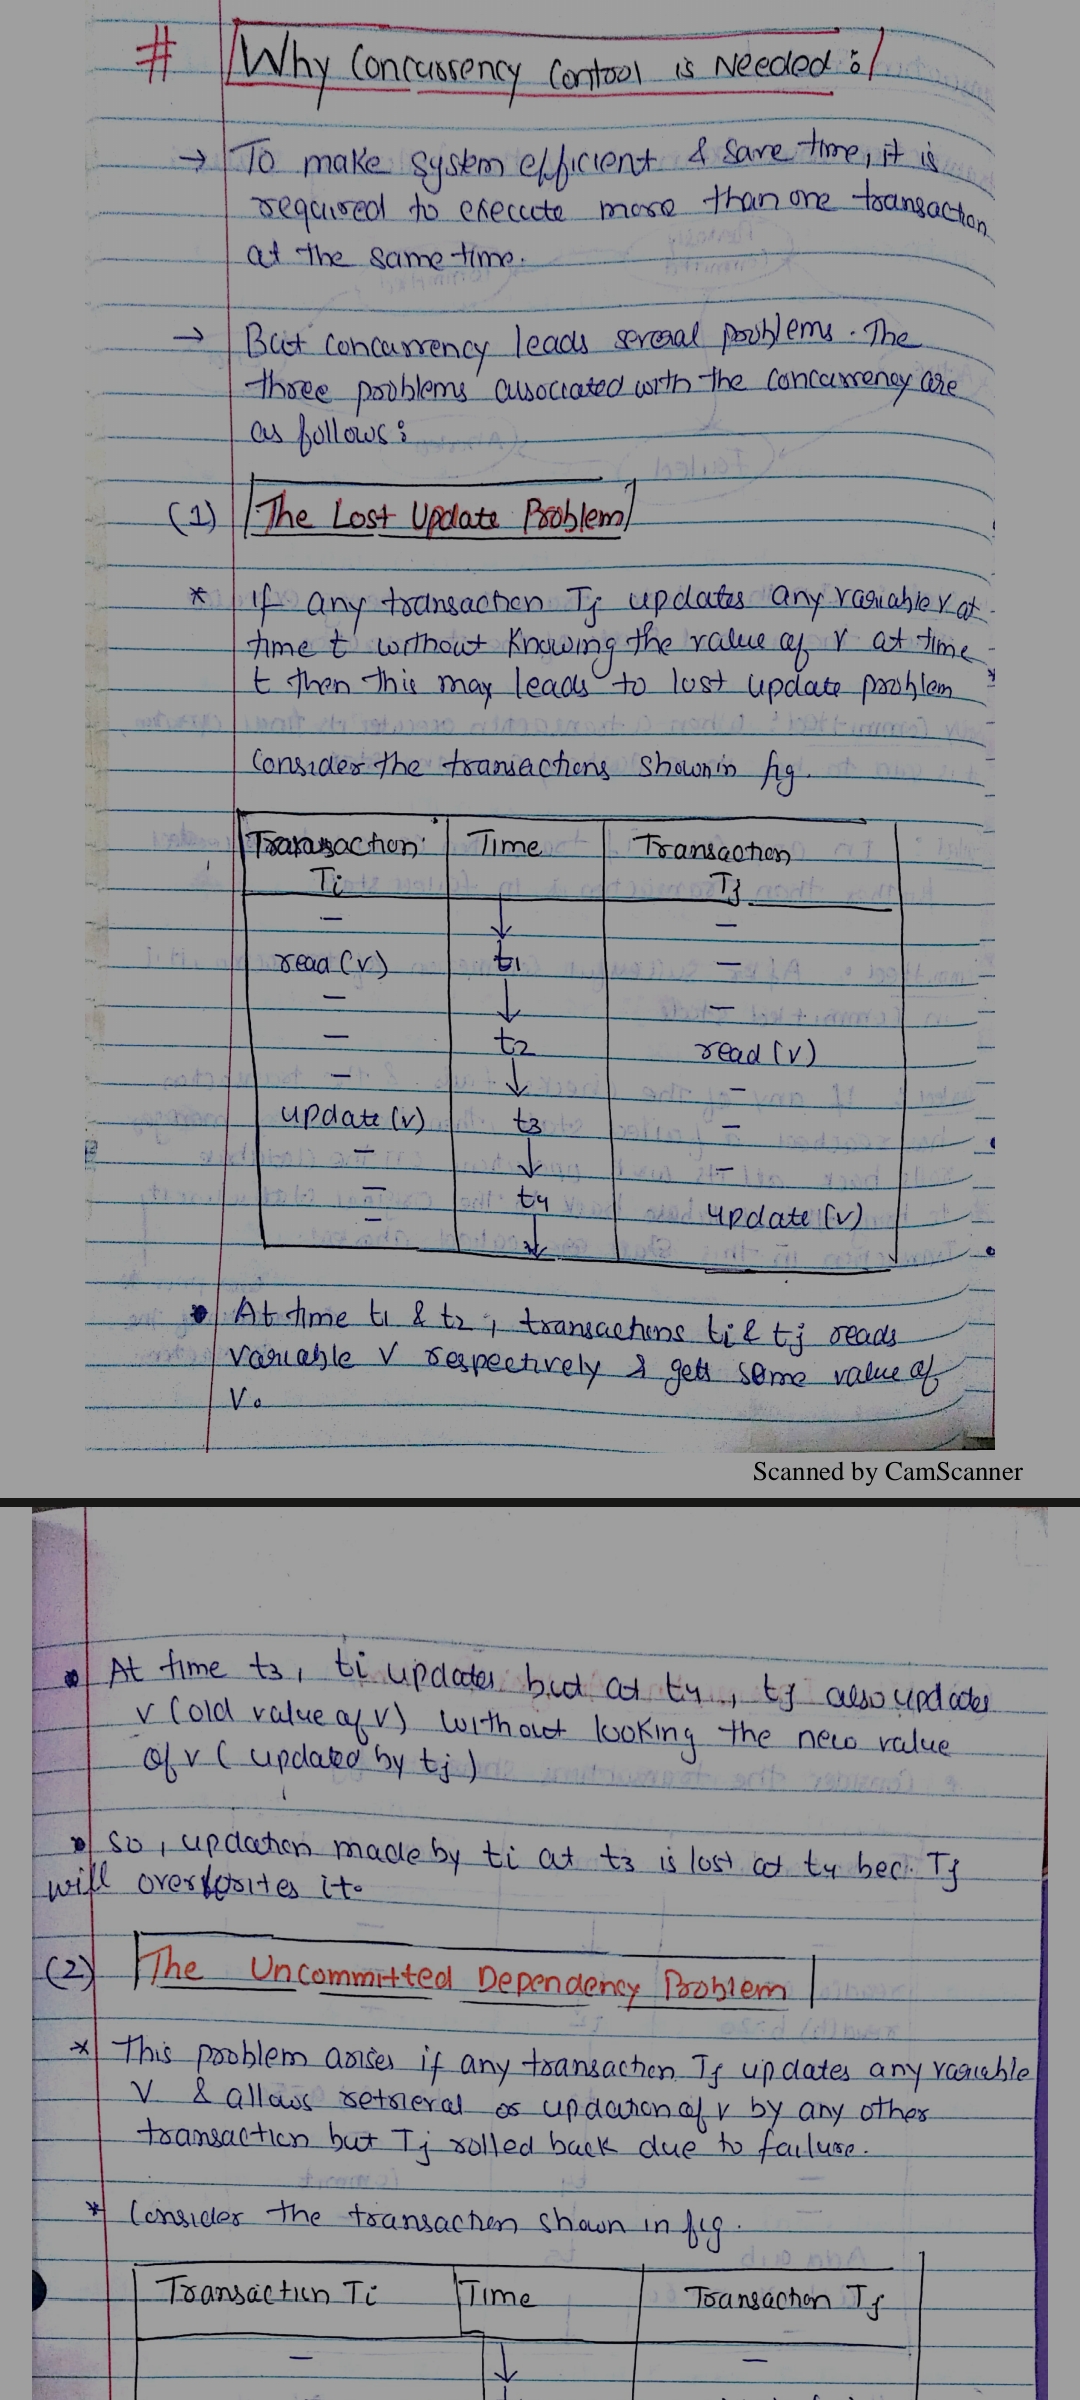 # Why Concurrency Control is Needed :
→ To make system efficient & save time, it is
required to execute more than one transaction
at the same time.
→ But concurrency leads several problems. The
three problems associated with the concurrency are
as follows :
(1) The Lost Update Problem
* If any transaction Tj updates any variable v at
time t without knowing the value of v at time
t then this may leads to lost update problem
Consider the transactions shown in fig.
Transaction Time Transaction
Ti Tj
- ↓ -
read (v) t1 -
- ↓ -
- t2 read (v)
- ↓ -
update (v) t3 -
- ↓ -
- t4 update (v)
- ↓
• At time t1 & t2, transactions ti & tj reads
variable v respectively & gets same value of
V.
Scanned by CamScanner
• At time t3, ti updates but at t4, tj also updates
v (old value of v) without looking the new value
of v (updated by tj)
• so, updation made by ti at t3 is lost at t4 bec. Tj
will overwrites it.
(2) The Uncommitted Dependency Problem
* This problem arises if any transaction Tj updates any variable
V & allows retrieval or updation of v by any other
transaction but Tj rolled back due to failure.
* Consider the transaction shown in fig.
Transaction Ti Time Transaction Tj
- ↓ -